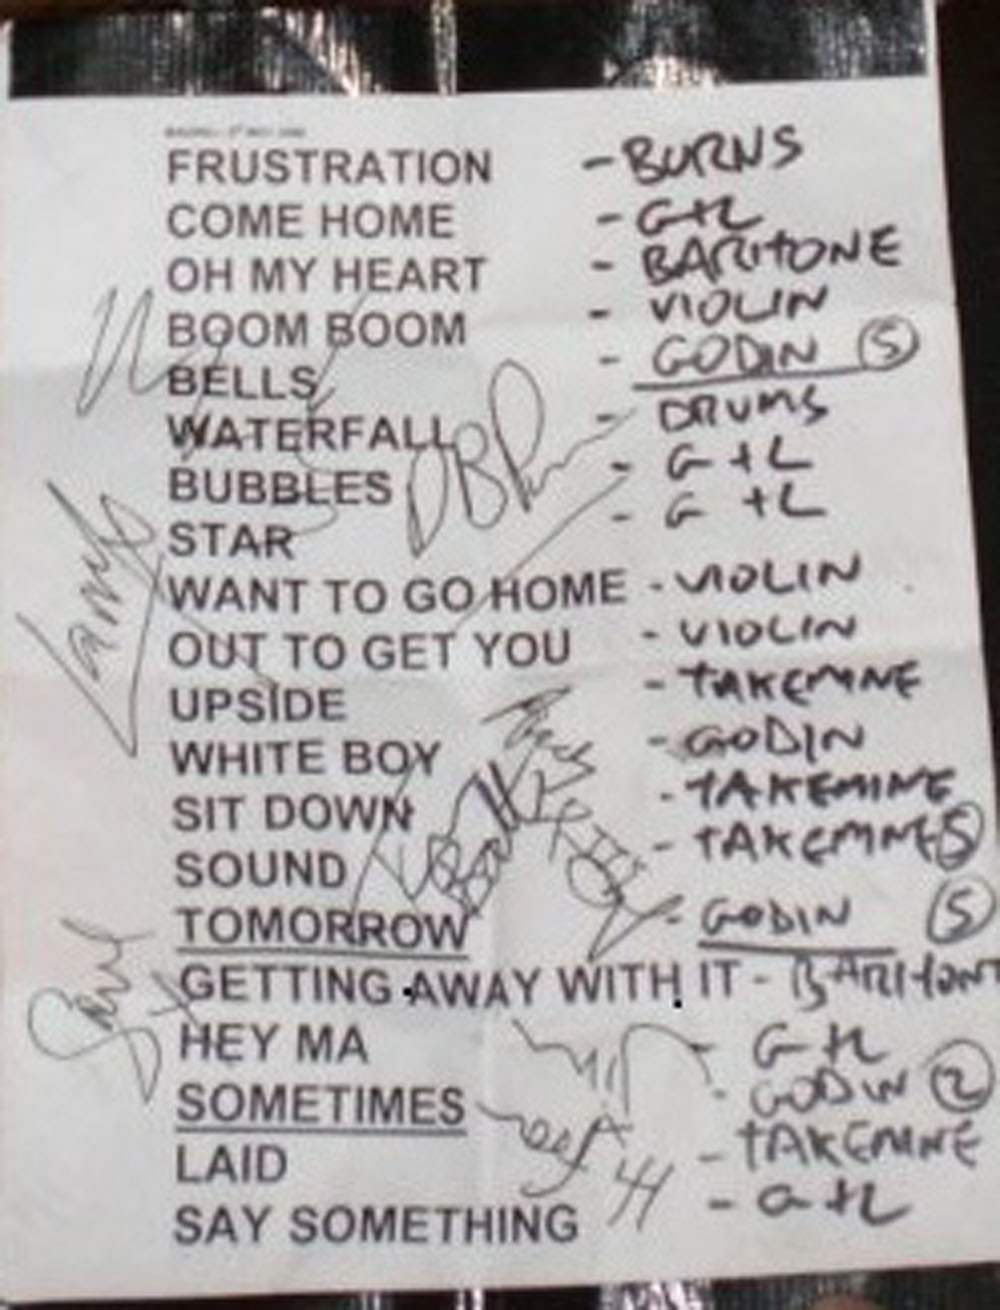 FRUSTRATION - BURNS
COME HOME - G+L
OH MY HEART - BARITONE
BOOM BOOM - VIOLIN
BELLS - GODIN (5)
WATERFALL - DRUMS
BUBBLES - G+L
STAR - G+L
WANT TO GO HOME - VIOLIN
OUT TO GET YOU - VIOLIN
UPSIDE - TAKEMINE
WHITE BOY - GODIN
SIT DOWN - TAKEMINE
SOUND - TAKEMINE (5)
TOMORROW - GODIN (5)
GETTING AWAY WITH IT - BARITONE
HEY MA - G+L
SOMETIMES - GODIN (2)
LAID - TAKEMINE
SAY SOMETHING - G+L
Larry